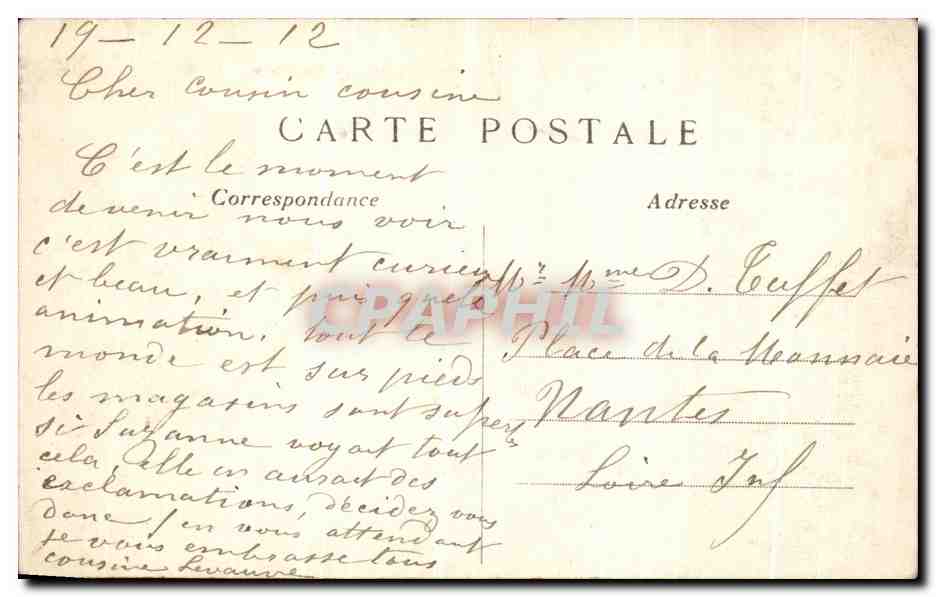 19 - 12 - 12
Cher cousin cousine
CARTE POSTALE
C'est le moment
Correspondance
de venir nous voir
c'est vraiment curieux
et beau, et puis quelle
animation, tout le
monde est sur pieds
les magasins sont supers
si Suzanne voyait tout
cela, elle en aurait des
exclamations, décidez vous
donc / en vous attendant
je vous embrasse tous
cousine
Adresse
Mr Mme D. Tuffet
Place de la Monnaie
Nantes
Loire Inf
CPAPHIL